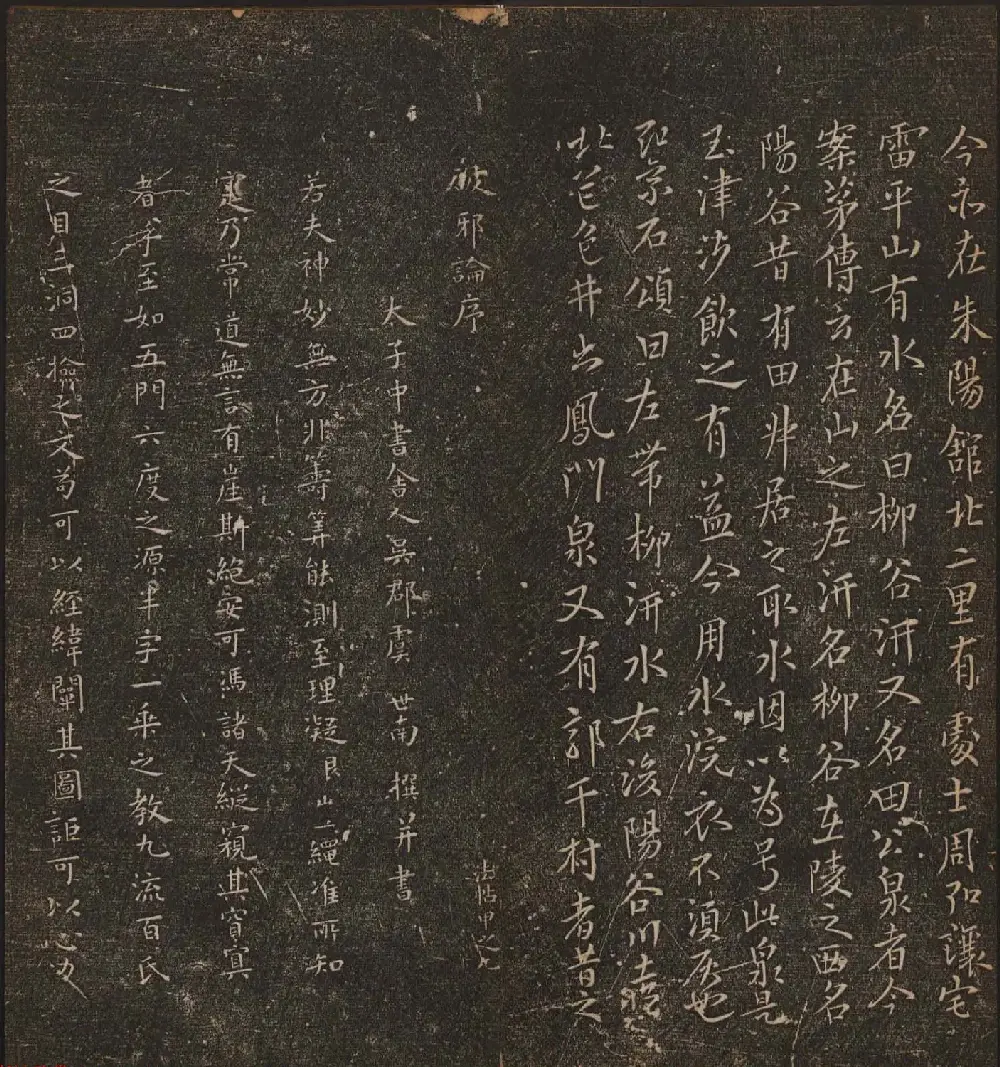 今亦在朱陽館北二里有處士周弘讓宅
雷平山有水名曰柳谷汧又名田公泉者今
案茅傳云在山之左汧名柳谷在陵之西名
陽谷昔有田井居之取水因以為号此泉是
玉津沙飲之有益今用水浣衣不湏灰也
碑石頌曰左帶柳汧水右浚陽谷川
此芒色井出鳳門泉又有郭千村者昔之
破邪論序
太子中書舍人吳郡虞世南撰并書
若夫神妙無方非籌筭能測至理凝邈豈繩准所知
寔乃常道無言有崖斯絕安可馮諸天縱窺其窅冥
者乎至如五門六度之源半字一乘之教九流百氏
之目三洞四檢之文苟可以經緯闡其圖詎可以心力
法帖甲之九